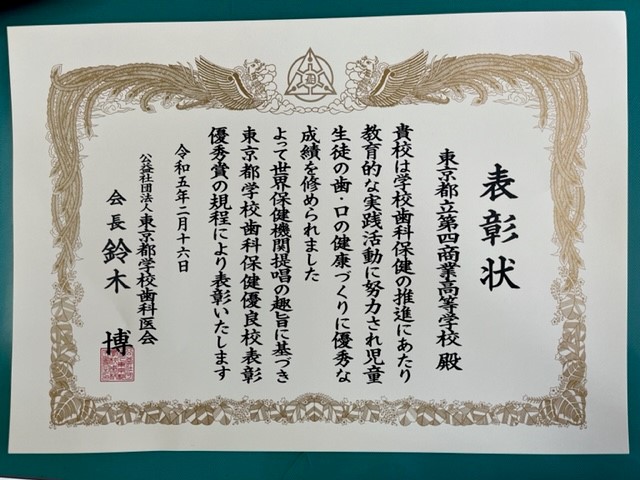 表彰状
東京都立第四商業高等学校 殿
貴校は学校歯科保健の推進にあたり
教育的な実践活動に努力され児童
生徒の歯・口の健康づくりに優秀な
成績を修められました
よって世界保健機関提唱の趣旨に基づき
東京都学校歯科保健優良校表彰
優秀賞の規程により表彰いたします
令和五年二月十六日
公益社団法人東京都学校歯科医会
会長 鈴木 博